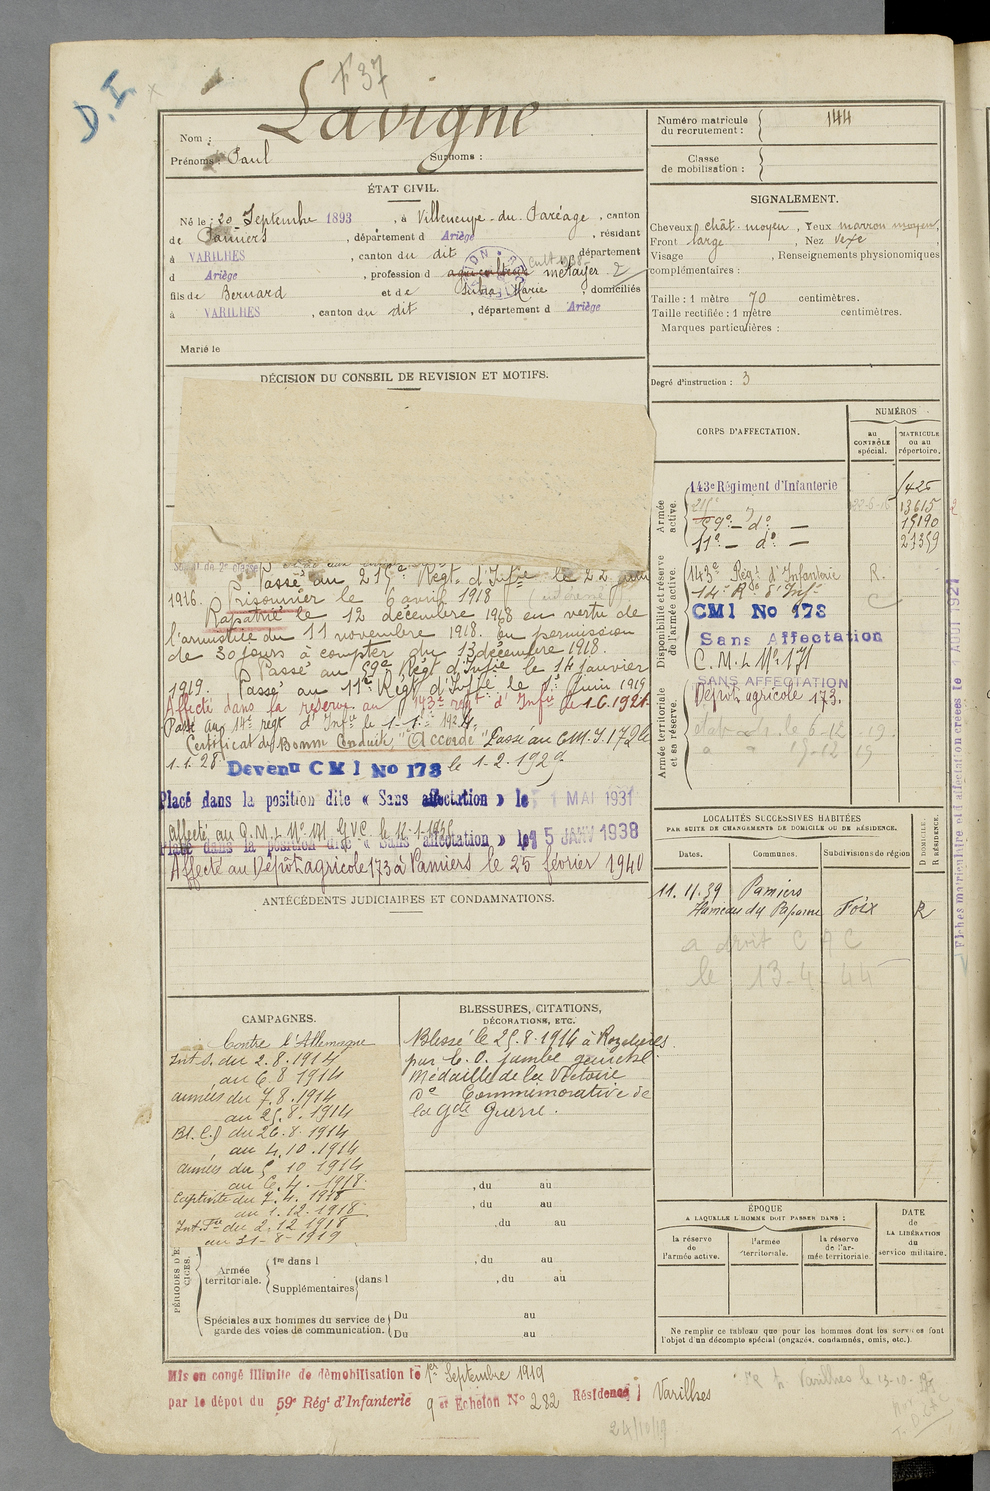 F 37
D.I
Lavigne
Nom :
Prénoms : Paul Surnoms :
ÉTAT CIVIL.
Né le : 20 Septembre 1893, à Villeneuve-du-Paréage, canton
de Pamiers, département d Ariège, résidant
à VARILHES, canton du dit, département
d Ariège, profession d agriculteur métayer 2
fils de Bernard et de Marie, domiciliés
à VARILHES, canton du dit, département d Ariège
Marié le
DÉCISION DU CONSEIL DE REVISION ET MOTIFS.
Soldat de 2e classe
Passé au 215e Régt d'Infie le 22 juin
1916. Prisonnier le 6 avril 1918
Rapatrié le 12 décembre 1918 en vertu de
l'armistice du 11 novembre 1918. en permission
de 30 jours à compter du 13 décembre 1918.
Passé au 59e Régt d'Infie le 14 janvier
1919. Passé au 11e Régt d'Infie le 1er Juin 1919
Affecté dans la réserve au 143e régt d'Infie le 1.6.1921.
Passé au 14e régt d'Infie le 1-1-1924.
Certificat de Bonne Conduite "Accordé" Passé au C.M.I. 172 le
1.1.28 Devenu CMI No 173 le 1-2-1929
Placé dans la position dite « Sans affectation » le 1 MAI 1931
affecté au C.M.I. No 171 G.V.C. le
Placé dans la position dite « Sans affectation » le 15 JANV 1938
Affecté au Dépôt agricole 173 à Pamiers le 25 février 1940
ANTÉCÉDENTS JUDICIAIRES ET CONDAMNATIONS.
CAMPAGNES.
Contre l'Allemagne
Int. S. du 2.8.1914
au 6.8.1914
armées du 7.8.1914
au 25.8.1914
Bl. C.) du 26.8.1914
au 4.10.1914
armées du 5.10.1914
au 6.4.1918
Captivité du 7.4.1918
au 1.12.1918.
Int. du 2.12.1918
au 31-8-1919
BLESSURES, CITATIONS,
DÉCORATIONS, ETC.
Blessé le 25.8.1914 à Rozelieures
par E.O. jambe gauche.
Médaille de la Victoire
do Commémorative de
la gde Guerre.
, du au
, du au
, du au
PÉRIODES D'E
CICES.
Armée
territoriale.
1re dans l , du au
Supplémentaires dans l , du au
Spéciales aux hommes du service de
garde des voies de communication.
Du au
Du au
Mis en congé illimité de démobilisation le 1er Septembre 1919
par le dépôt du 59e Régt d'Infanterie 9e Echelon No 282 Résidence : Varilhes
24/10/19
Numéro matricule
du recrutement : 144
Classe
de mobilisation :
SIGNALEMENT.
Cheveux chât. moyen, Yeux marron moyen,
Front large, Nez vexe
Visage , Renseignements physionomiques
complémentaires :
Taille : 1 mètre 70 centimètres.
Taille rectifiée : 1 mètre centimètres.
Marques particulières :
Degré d'instruction : 3
CORPS D'AFFECTATION.
NUMÉROS
au
CONTRÔLE
spécial.
MATRICULE
ou au
répertoire.
Armée
active.
143e Régiment d'Infanterie
215e 13615
59e - do - 15190
11e - do - 21359
Disponibilité et réserve
de l'armée active.
143e Régt d'Infanterie R.
14e R. d'Infie
CMI No 173
Sans Affectation
C.M.I. No 171
SANS AFFECTATION
Armée territoriale
et sa réserve.
Dépôt agricole 173.
LOCALITÉS SUCCESSIVES HABITÉES
PAR SUITE DE CHANGEMENTS DE DOMICILE OU DE RÉSIDENCE.
Dates. Communes. Subdivisions de région
D DOMICILE.
R RÉSIDENCE.
11.11.39 Pamiers
Hameau du Foix R
a droit C A C
le 13-4-44
ÉPOQUE
A LAQUELLE L'HOMME DOIT PASSER DANS :
la réserve
de
l'armée active.
l'armée
territoriale.
la réserve
de l'ar-
mée territoriale.
DATE
de
LA LIBÉRATION
du
service militaire.
Ne remplir ce tableau que pour les hommes dont les services font
l'objet d'un décompte spécial (engagés, condamnés, omis, etc.).
Varilhes le 13-10
Fiches matriculaire et d'affectation créées le 1 AOUT 1921